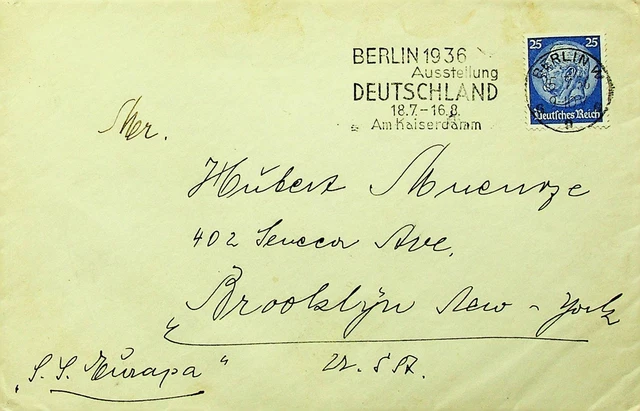 BERLIN 1936
Ausstellung
DEUTSCHLAND
18.7.-16.8.
Am Kaiserdamm
25 25
BERLIN W
Deutsches Reich
Mr.
Hubert
402 Seneca Ave.
Brooklyn New-York
"S.S. Europa"